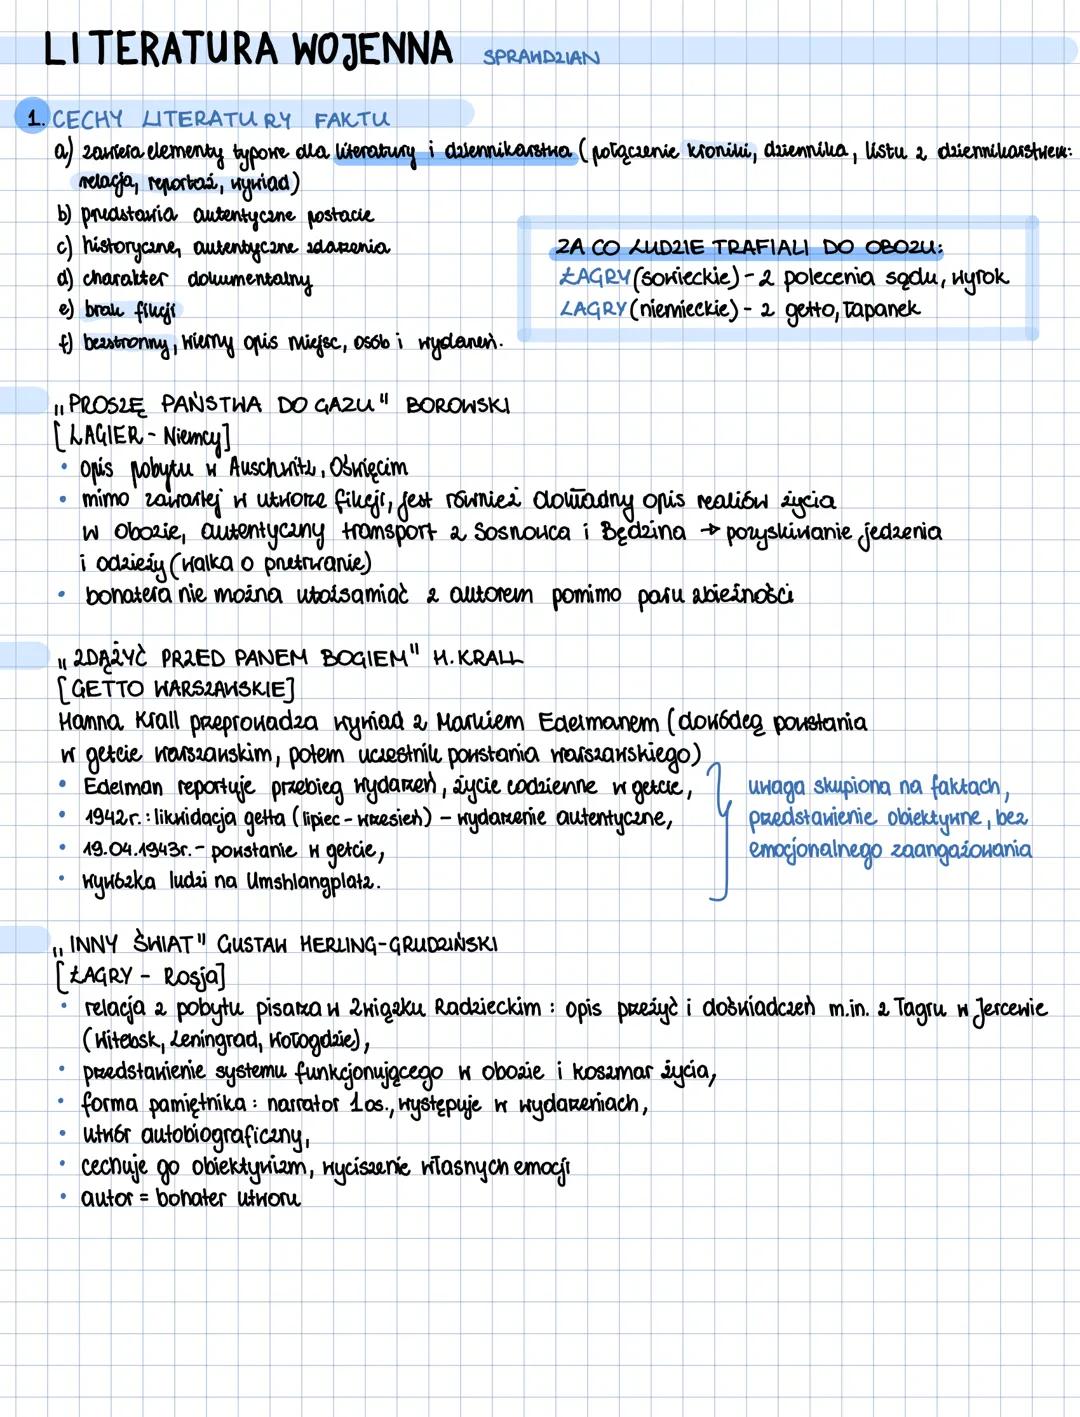 LITERATURA WOJENNA SPRAWDZIAN
1. CECHY LITERATURY FAKTU
a) zawiera elementy typowe dla literatury i dziennikarstwa (połączenie kroniki, dziennika, listu z dziennikarstwem:
relacja, reportaż, wywiad)
b) przedstawia autentyczne postacie
c) historyczne, autentyczne zdarzenia
d) charakter dokumentalny
e) brak fikcji
f) bezstronny, wierny opis miejsc, osób i wydarzeń.
ZA CO LUDZIE TRAFIALI DO OBOZU:
ŁAGRY (sowieckie) - z polecenia sądu, wyrok
LAGRY (niemieckie) - z getto, łapanek
„PROSZĘ PAŃSTWA DO GAZU" BOROWSKI
[LAGIER - Niemcy]
• opis pobytu w Auschwitz, Oświęcim
• mimo zawartej w utworze fikcji, jest również dokładny opis realiów życia
w obozie, autentyczny transport z Sosnowca i Będzina → pozyskiwanie jedzenia
i odzieży (walka o przetrwanie)
• bohatera nie można utożsamiać z autorem pomimo paru zbieżności
„ZDĄŻYĆ PRZED PANEM BOGIEM" H. KRALL
[GETTO WARSZAWSKIE]
Hanna Krall przeprowadza wywiad z Markiem Edelmanem (dowódcą powstania
w getcie warszawskim, potem uczestnik powstania warszawskiego)
• Edelman reportuje przebieg wydarzeń, życie codzienne w getcie,
• 1942r.: likwidacja getta (lipiec - wrzesień) - wydarzenie autentyczne,
• 19.04.1943r. - powstanie w getcie,
• wywózka ludzi na Umshlangplatz.
uwaga skupiona na faktach,
przedstawienie obiektywne, bez
emocjonalnego zaangażowania
„INNY ŚWIAT" GUSTAW HERLING-GRUDZIŃSKI
[ŁAGRY - Rosja]
• relacja z pobytu pisarza w Związku Radzieckim: opis przeżyć i doświadczeń m.in. z łagru w Jercewie
(Witebsk, Leningrad, Wołogdzie),
• przedstawienie systemu funkcjonującego w obozie i koszmar życia,
• forma pamiętnika: narrator 1os., występuje w wydarzeniach,
• utwór autobiograficzny,
• cechuje go obiektywizm, wyciszenie własnych emocji
• autor = bohater utworu